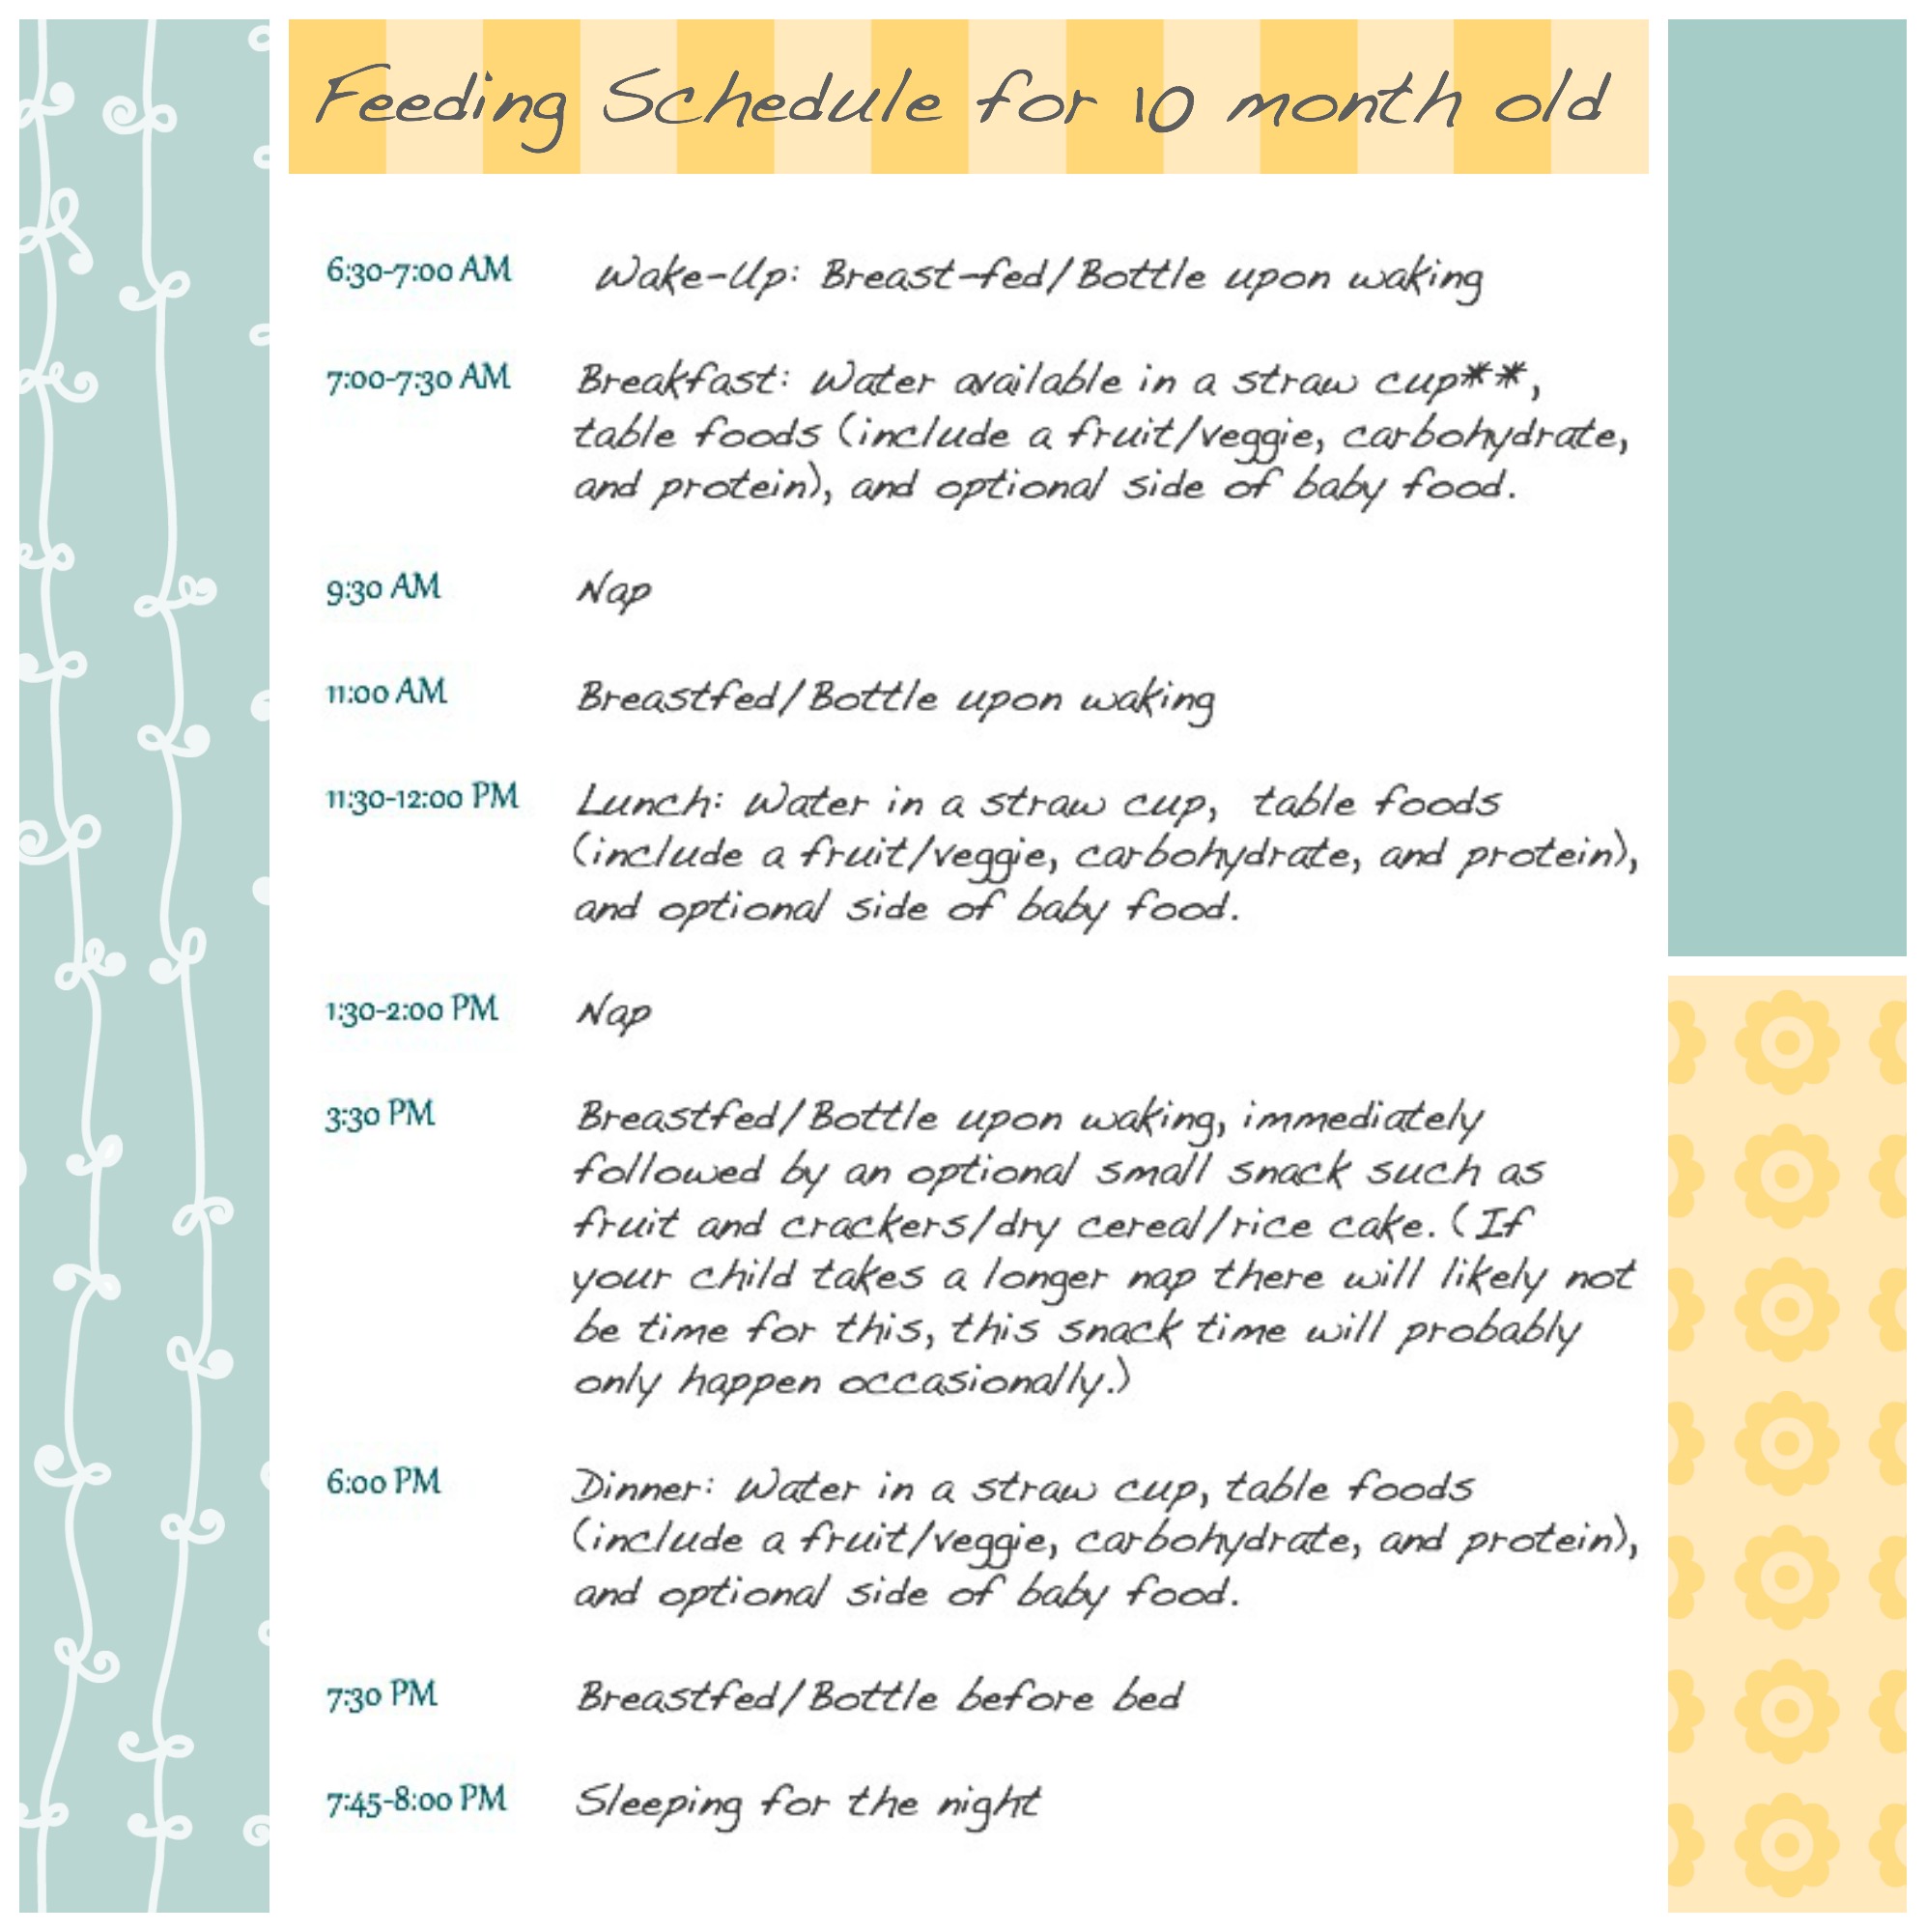 Feeding Schedule for 10 month old
6:30-7:00 AM Wake-Up: Breast-fed/Bottle upon waking
7:00-7:30 AM Breakfast: Water available in a straw cup**,
table foods (include a fruit/veggie, carbohydrate,
and protein), and optional side of baby food.
9:30 AM Nap
11:00 AM Breastfed/Bottle upon waking
11:30-12:00 PM Lunch: Water in a straw cup, table foods
(include a fruit/veggie, carbohydrate, and protein),
and optional side of baby food.
1:30-2:00 PM Nap
3:30 PM Breastfed/Bottle upon waking, immediately
followed by an optional small snack such as
fruit and crackers/dry cereal/rice cake. (If
your child takes a longer nap there will likely not
be time for this, this snack time will probably
only happen occasionally.)
6:00 PM Dinner: Water in a straw cup, table foods
(include a fruit/veggie, carbohydrate, and protein),
and optional side of baby food.
7:30 PM Breastfed/Bottle before bed
7:45-8:00 PM Sleeping for the night